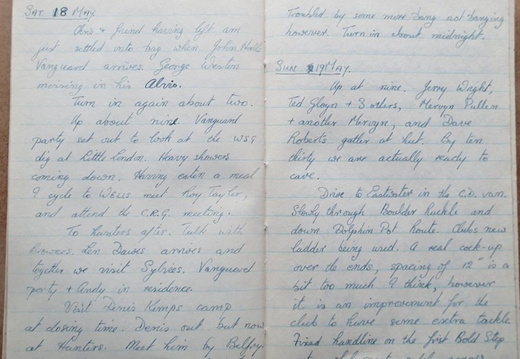 Sat. 18 May
Chris & friend having left am
just settled into bag when John Hall
Vanguard arrives. George Weston
morning in his Alvis.
Turn in again about two.
Up about nine. Vanguard
party set out to look at the WSG
dig at Little London. Heavy showers
coming down. Having eaten a meal
I cycle to Wells meet Roy Taylor,
and attend the C.R.G. meeting.
To Hunters after. Talk with
Brownes. Len Dawes arrives and
together we visit Sylvias. Vanguard
party & Andy in residence.
Visit Denis Kemps camp
at closing time. Denis out but now
at Hunters. Meet him by Belfry
Troubled by some more bang not banging
however. Turn in about midnight.
Sun 19 May.
Up at nine. Jerry Wright,
Ted Gloyn & 3 others, Mervyn Pullin
& another Mervyn, and Dave
Roberts gather at hut. By ten
thirty we are actually ready to
cave.
Drive to Eastwater in the C.D. van.
Slowly through Boulder Ruckle and
down Dolphin Pot Route. Clubs new
ladder being used. A real cock-up
over the ends, spacing of 12" is a
bit too much I think, however
it is an improvement for the
club to have some extra tackle
Fixed handline on the first Bold Step